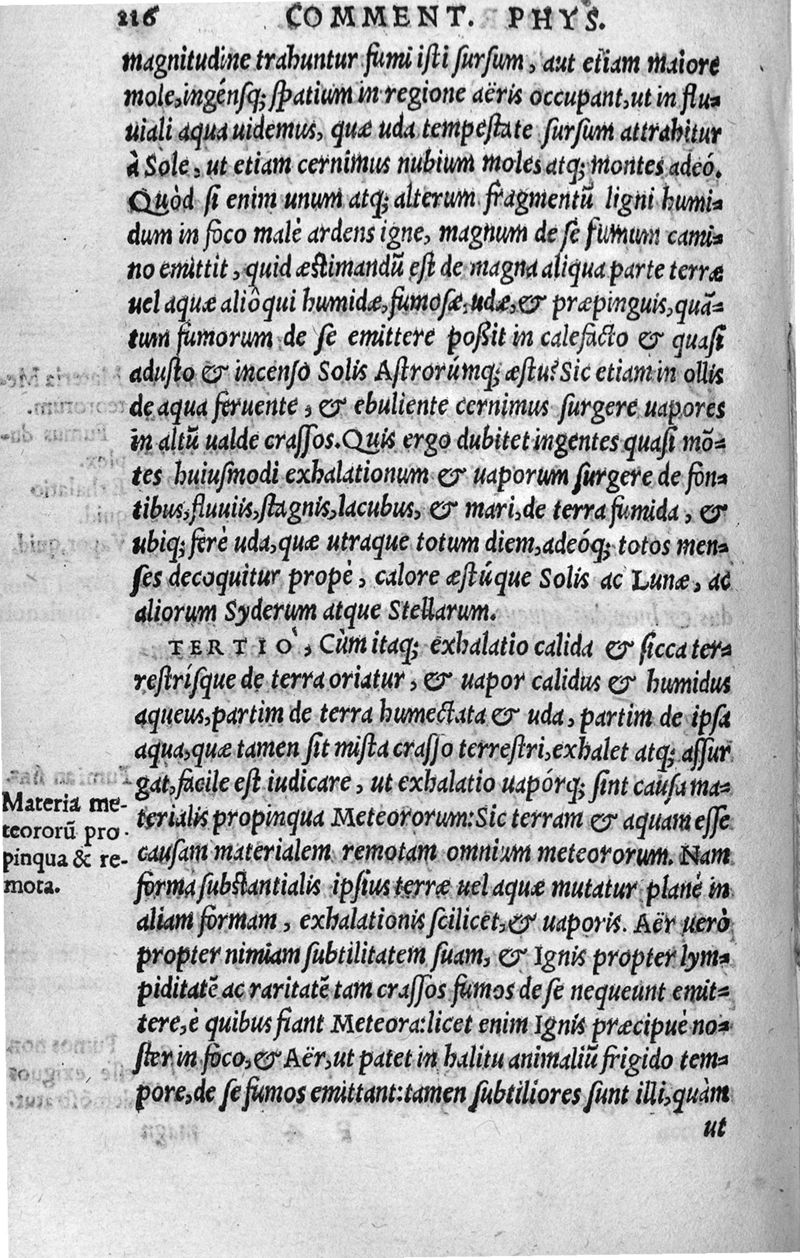 216 COMMENT. PHYS.
magnitudine trahuntur fumi isti sursum, aut etiam maiore
mole, ingénsq; spatium in regione aëris occupant, ut in flu-
uiali aqua uidemus, quæ uda tempestate sursum attrahitur
à Sole, ut etiam cernimus nubium moles atq; montes adeó.
Quòd si enim unum atq; alterum fragmentũ ligni humi-
dum in foco malè ardens igne, magnum de se fumum cami-
no emittit, quid æstimandũ est de magna aliqua parte terræ
uel aquæ aliôqui humidæ, fumosæ, udæ, & præpinguis, quã-
tum fumorum de se emittere poßit in calefacto & quasi
adusto & incenso Solis Astrorúmq; æstu? Sic etiam in ollis
de aqua feruente, & ebuliente cernimus surgere uapores
in altũ ualde crassos. Quis ergo dubitet ingentes quasi mõ-
tes huiusmodi exhalationum & uaporum surgere de fon-
tibus, fluuiis, stagnis, lacubus, & mari, de terra fumida, &
ubiq; ferè uda, quæ utraque totum diem, adeóq; totos men-
ses decoquitur propè, calore æstúque Solis ac Lunæ, ac
aliorum Syderum atque Stellarum.
TERTIO`, Cùm itaq; exhalatio calida & sicca ter-
restrísque de terra oriatur, & uapor calidus & humidus
aqueus, partim de terra humectata & uda, partim de ipsa
aqua, quæ tamen sit mista crasso terrestri, exhalet atq; assur
gat, facile est iudicare, ut exhalatio uapórq; sint causa ma-
terialis propinqua Meteororum: Sic terram & aquam esse
causam materialem remotam omnium meteororum. Nam
forma substantialis ipsius terræ uel aquæ mutatur planè in
aliam formam, exhalationis scilicet, & uaporis. Aër uerò
propter nimiam subtilitatem suam, & Ignis propter lym-
piditatẽ ac raritatẽ tam crassos fumos de se nequeunt emit-
tere, è quibus fiant Meteora: licet enim Ignis præcipuè no-
ster in foco, & Aër, ut patet in halitu animaliũ frigido tem-
pore, de se fumos emittant: tamen subtiliores sunt illi, quàm
ut
Materia me-
teororũ pro-
pinqua & re-
mota.